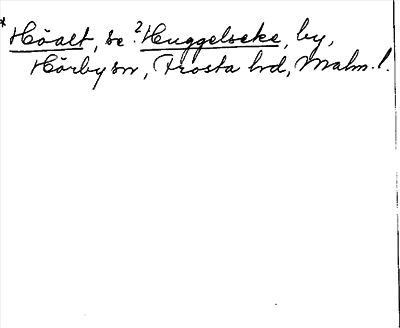 *Höalt, se ²Huggelseke, by,
Hörby sn, Frosta hd, Malm. l.